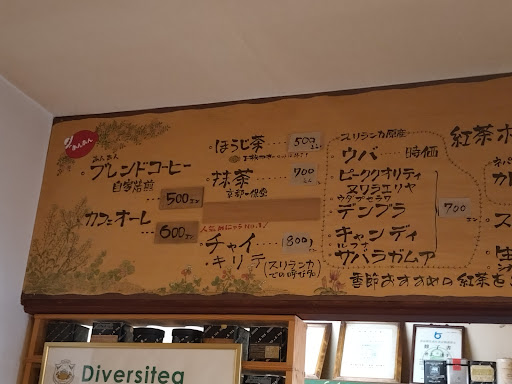 あんあん
あんあん
ブレンドコーヒー
自家焙煎
500
カフェオーレ
600
ほうじ茶 500
抹茶 700
京都一保堂
チャイ 800
キリテ(スリランカでの呼び名)
スリランカ原産
ウバ 時価
ピーククオリティ
ヌワラエリヤ
ウダプセラワ
デンブラ
キャンディ
ルフナ
サバラガムア
700
季節おすすめの紅茶を
紅茶ポ
Diversitea